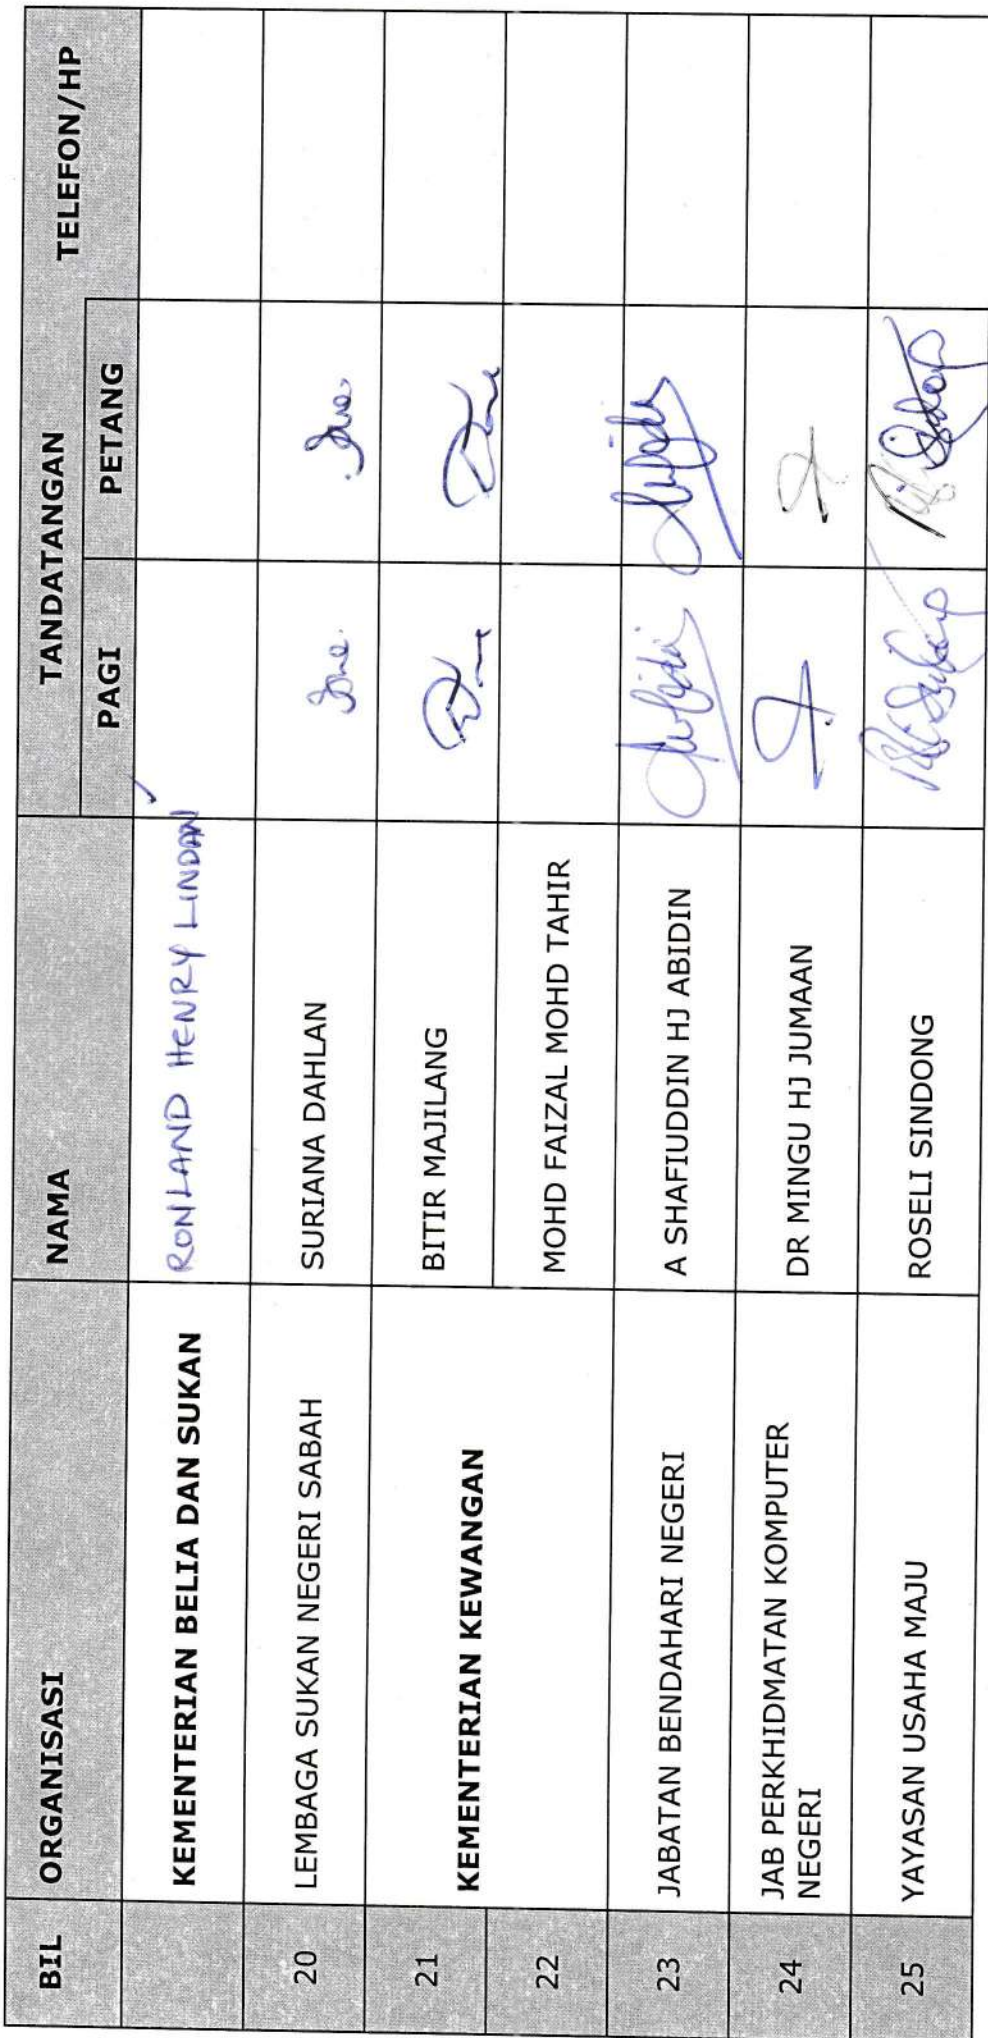 BIL ORGANISASI NAMA TANDATANGAN TELEFON/HP
PAGI PETANG
KEMENTERIAN BELIA DAN SUKAN RONLAND HENRY LINDAN
20 LEMBAGA SUKAN NEGERI SABAH SURIANA DAHLAN
21 KEMENTERIAN KEWANGAN BITIR MAJILANG
22 MOHD FAIZAL MOHD TAHIR
23 JABATAN BENDAHARI NEGERI A SHAFIUDDIN HJ ABIDIN
24 JAB PERKHIDMATAN KOMPUTER NEGERI DR MINGU HJ JUMAAN
25 YAYASAN USAHA MAJU ROSELI SINDONG